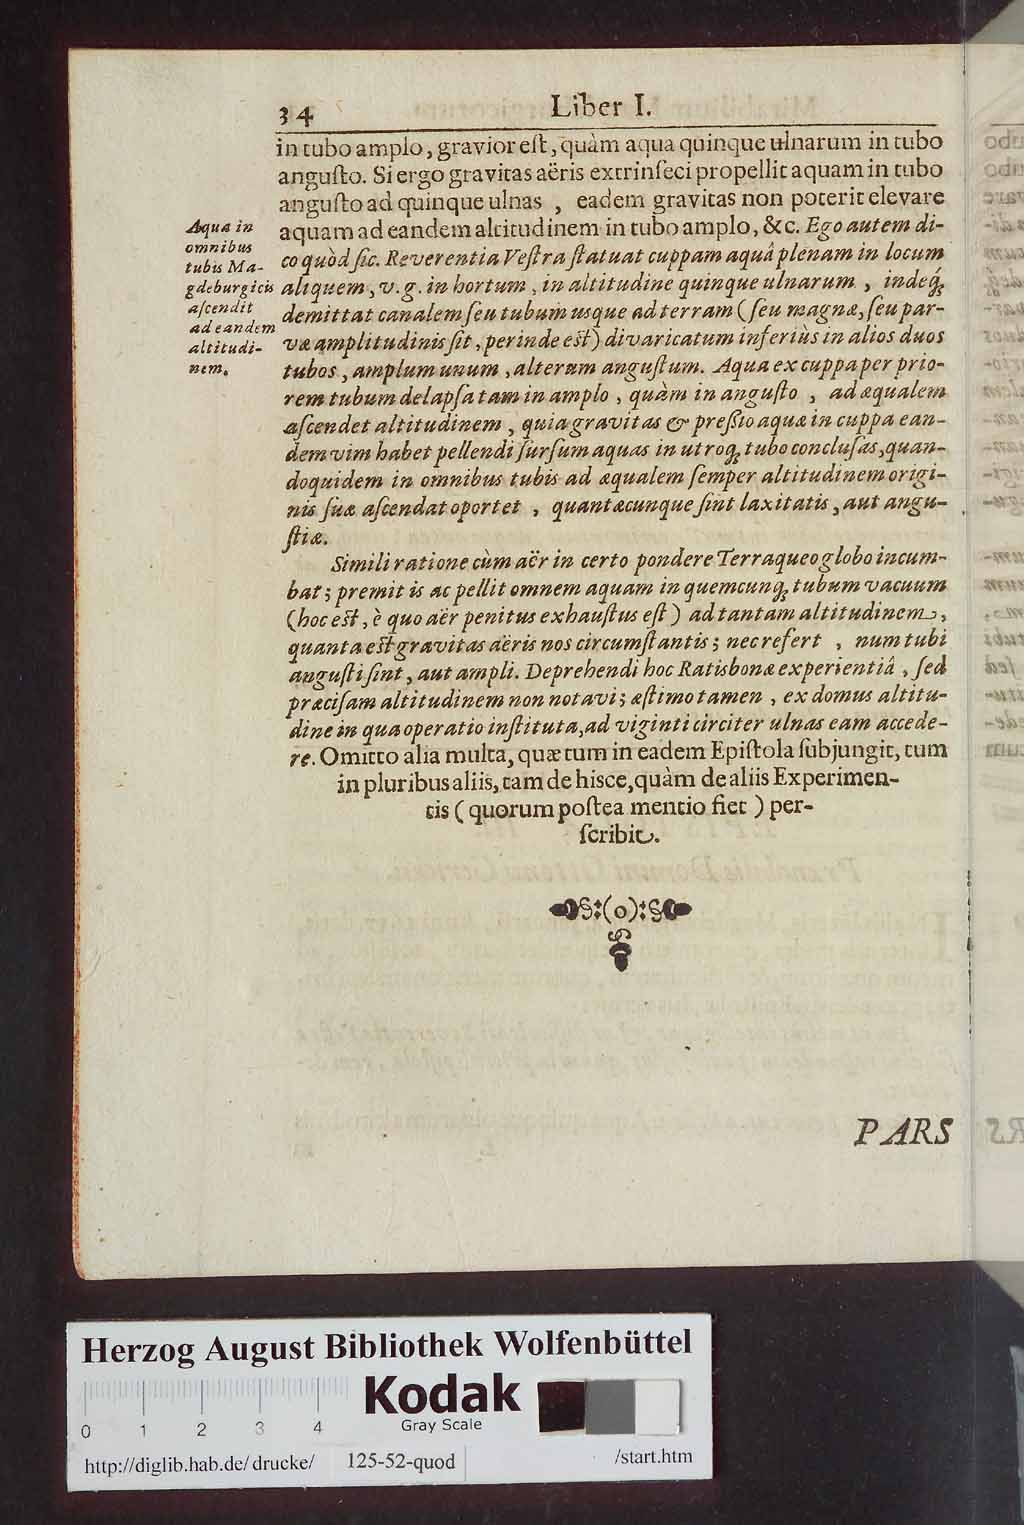 34
Liber I.
in tubo amplo, gravior eſt, quàm aqua quinque ulnarum in tubo
anguſto. Si ergo gravitas aëris extrinſeci propellit aquam in tubo
anguſto ad quinque ulnas , eadem gravitas non poterit elevare
aquam ad eandem altitudinem in tubo amplo, &c. Ego autem di-
co quòd ſic. Reverentia Veſtra ſtatuat cuppam aquâ plenam in locum
aliquem, v. g. in hortum, in altitudine quinque ulnarum , indeq́;
demittat canalem ſeu tubum usque ad terram (ſeu magnæ, ſeu par-
væ amplitudinis ſit, perinde eſt) divaricatum inferiùs in alios duos
tubos, amplum unum, alterum anguſtum. Aqua ex cuppa per prio-
rem tubum delapſa tam in amplo, quàm in anguſto , ad æqualem
aſcendet altitudinem, quia gravitas & preſſio aquæ in cuppa ean-
dem vim habet pellendi ſurſum aquas in utroq́; tubo concluſas, quan-
doquidem in omnibus tubis ad æqualem ſemper altitudinem origi-
nis ſuæ aſcendat oportet , quantæcunque ſint laxitatis, aut angu-
ſtiæ.
Aqua in
omnibus
tubis Ma-
gdeburgicis
aſcendit
ad eandem
altitudi-
nem.
Simili ratione cùm aër in certo pondere Terraqueo globo incum-
bat; premit is ac pellit omnem aquam in quemcunq́; tubum vacuum
(hoc eſt, è quo aër penitus exhauſtus eſt) ad tantam altitudinem,
quanta eſt gravitas aëris nos circumſtantis; nec refert , num tubi
anguſti ſint, aut ampli. Deprehendi hoc Ratisbonæ experientiâ , ſed
præciſam altitudinem non notavi; æſtimo tamen , ex domus altitu-
dine in qua operatio inſtituta, ad viginti circiter ulnas eam accede-
re. Omitto alia multa, quæ tum in eadem Epiſtola ſubjungit, tum
in pluribus aliis, tam de hisce, quàm de aliis Experimen-
tis (quorum poſtea mentio fiet) per-
ſcribit.
§:(o):§
PARS
Herzog August Bibliothek Wolfenbüttel
Kodak
Gray Scale
0 1 2 3 4
http://diglib.hab.de/drucke/ 125-52-quod /start.htm